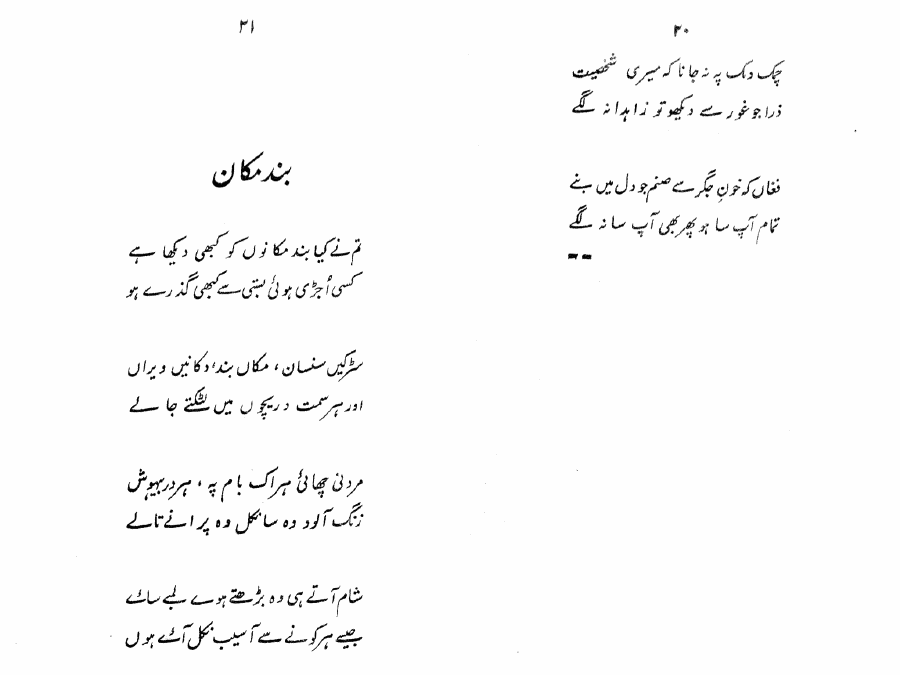 ۲۰
چمک دمک پہ نہ جانا کہ میری شخصیت
ذرا جو غور سے دیکھو تو زاہدانہ لگے
فغاں کہ خونِ جگر سے صنم جو دل میں بنے
تمام آپ سا ہو پھر بھی آپ سا نہ لگے
۲۱
بند مکان
تم نے کیا بند مکانوں کو کبھی دیکھا ہے
کسی اُجڑی ہوئی بستی سے کبھی گذرے ہو
سڑکیں سنسان، مکاں بند، دکانیں ویراں
اور ہر سمت دریچوں میں لٹکتے جالے
مردنی چھائی ہر اک بام پہ، ہر در بیہوش
زنگ آلود وہ سانکل وہ پرانے تالے
شام آتے ہی وہ بڑھتے ہوے لمبے سائے
جیسے ہر کونے سے آسیب نکل آئے ہوں